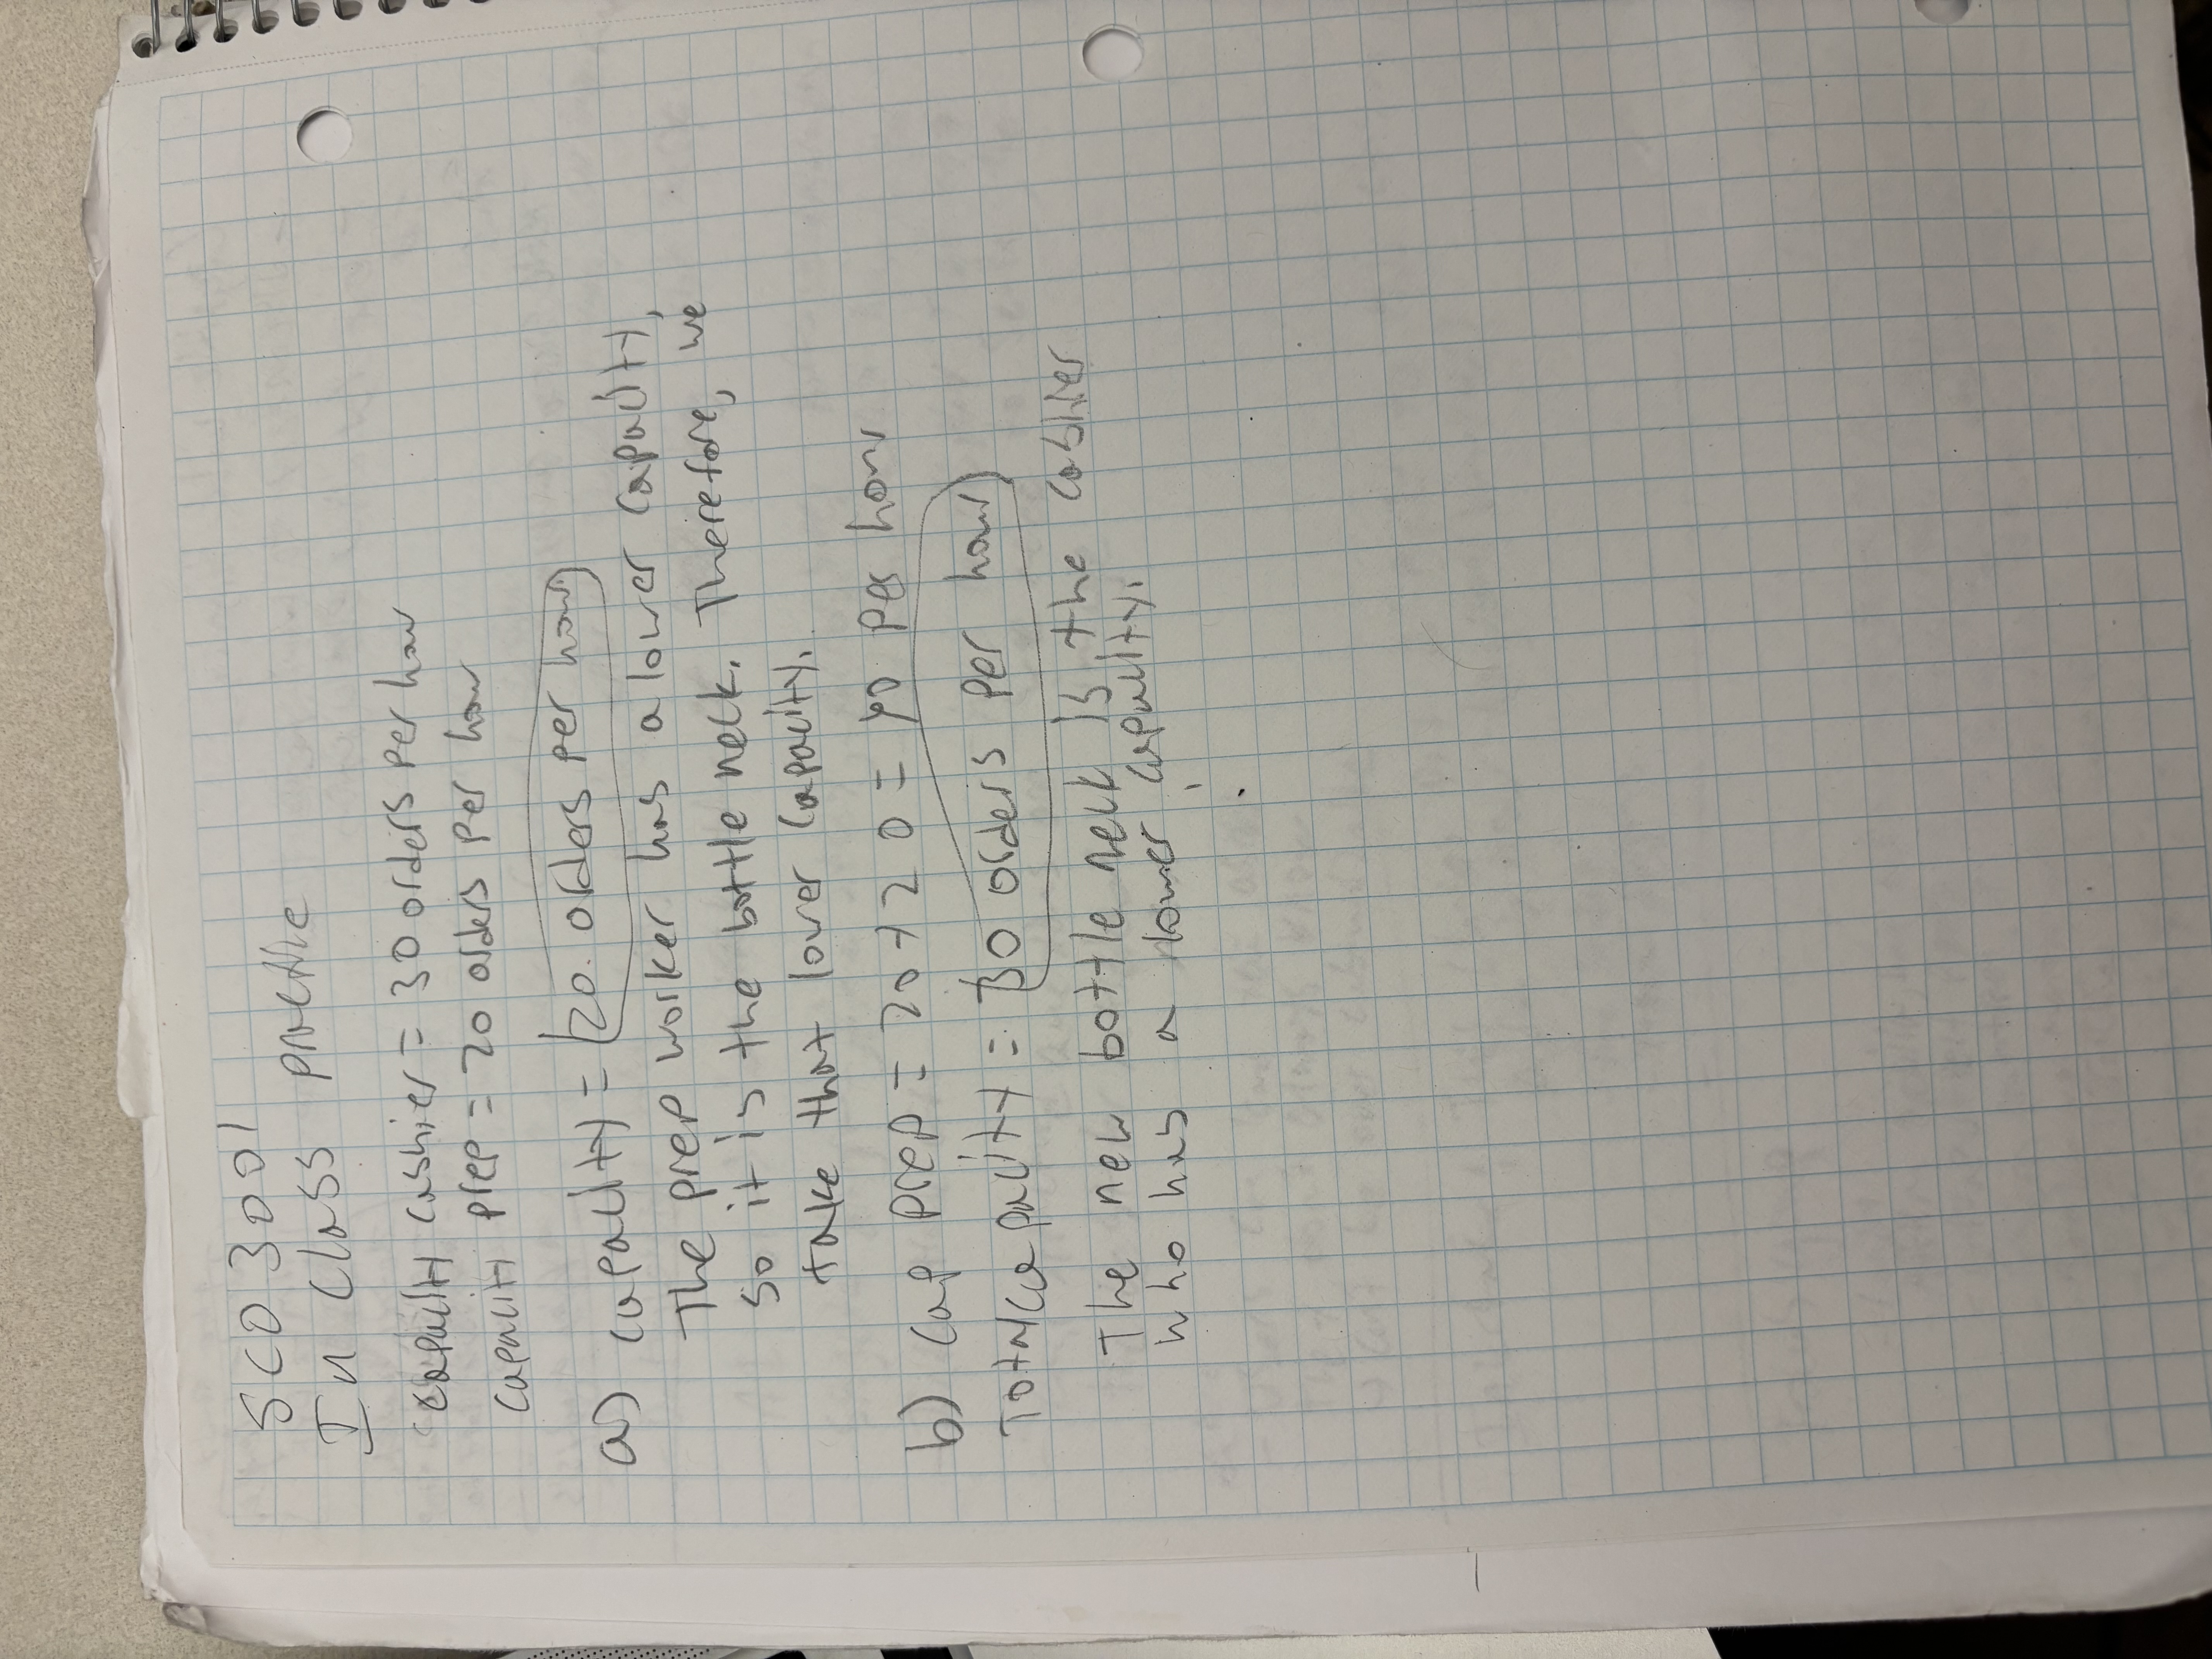 SCO 3001
In Class practice
capacity cashier = 30 orders per hour
capacity prep = 20 orders per hour
a) capacity = 20 orders per hour
The prep worker has a lower capacity,
so it is the bottle neck. Therefore, we
take that lower capacity.
b) Cap prep = 20+20 = 40 per hour
Total capacity = 30 orders per hour
The new bottle neck is the cashier
who has a lower capacity.